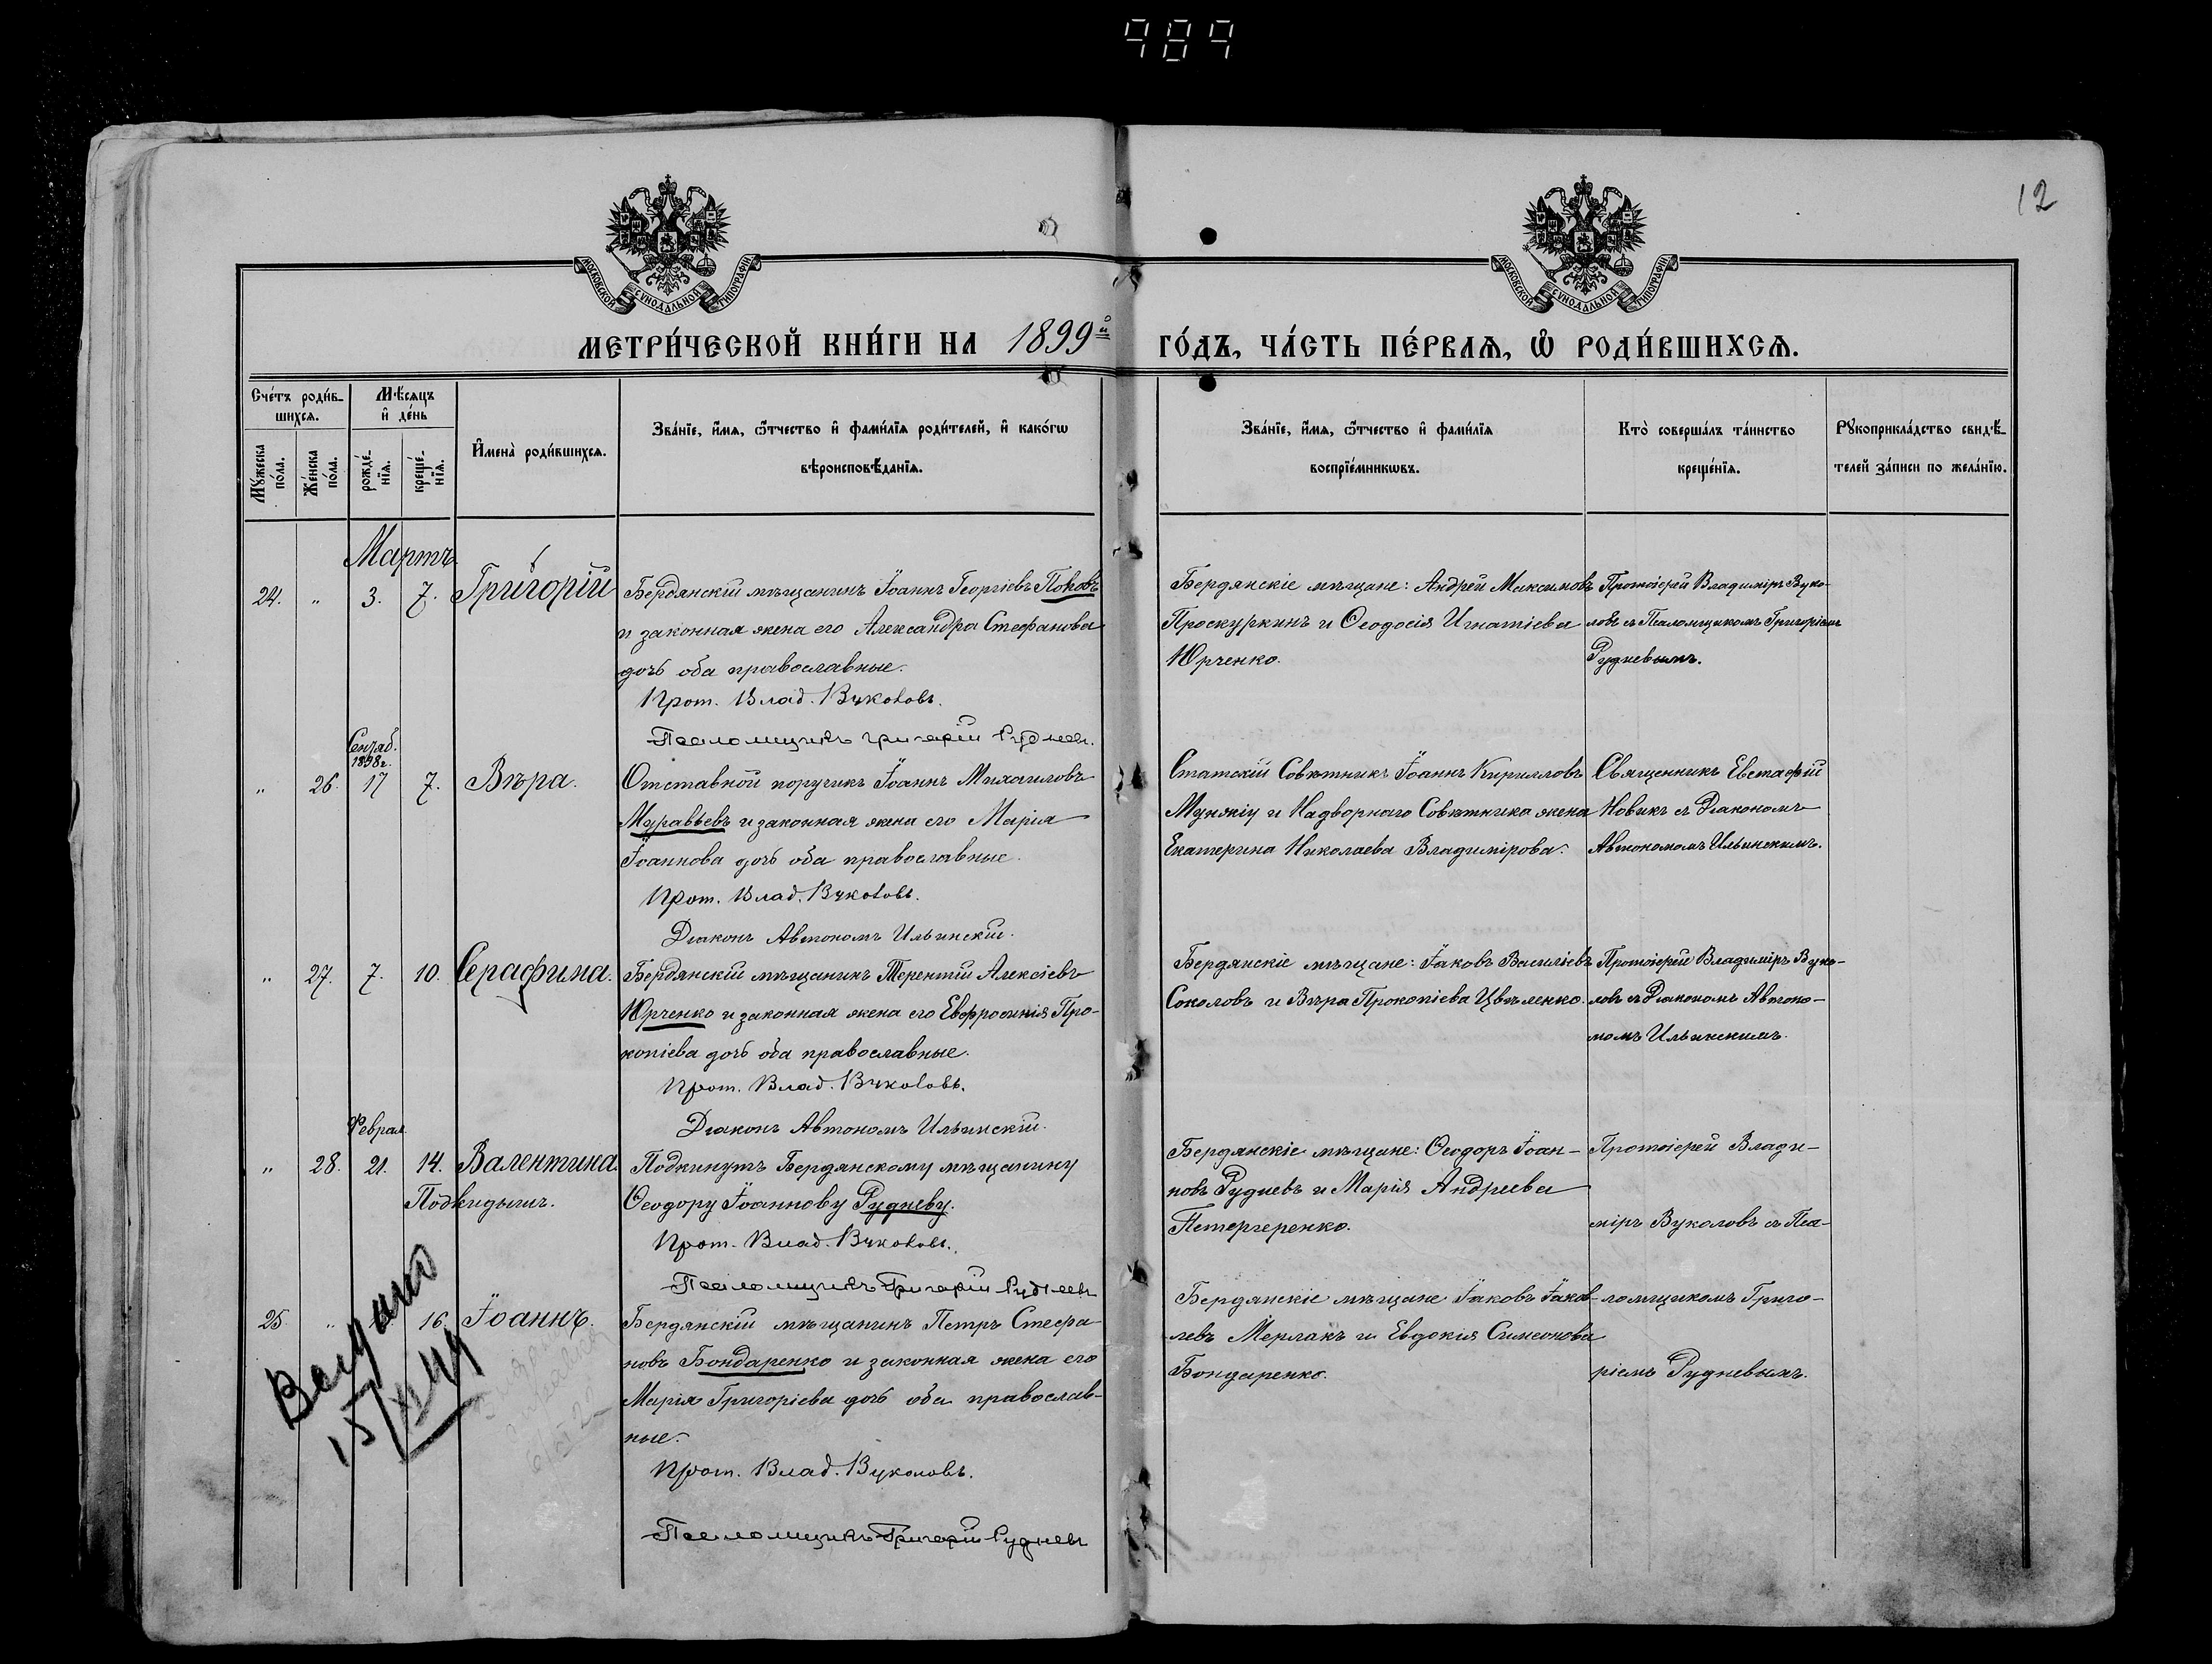 989
12
МОСКОВСКОЙ СѴНОДАЛЬНОЙ ТИПОГРАФІИ
МОСКОВСКОЙ СѴНОДАЛЬНОЙ ТИПОГРАФІИ
МЕТРИ́ЧЕСКОЙ КНИ́ГИ НА 1899й ГО́ДЪ, ЧА́СТЬ ПЕ́РВАѦ, Ѽ РОДИ́ВШИХСѦ.
Сче́тъ роди́в-
шихсѧ.
Мѣ́сѧцъ
и҆ де́нь
Му́жеска
по́ла.
Же́нска
по́ла.
рожде́-
нїѧ.
креще́-
нїѧ.
И҆мена̀ роди́вшихсѧ.
Зва́нїе, и҆́мѧ, ѻ҆́тчество и҆ фами́лїѧ роди́телей, и҆ како́гѡ
вѣроисповѣ́данїѧ.
Зва́нїе, и҆́мѧ, ѻ҆́тчество и҆ фами́лїѧ
воспрїе́мникѡвъ.
Кто̀ соверша́лъ та́инство
креще́нїѧ.
Рꙋкоприкла́дство свидѣ́-
телей за́писи по жела́нїю.
Мартъ
24. " 3. 7. Григорій
Бердянскій мѣщанинъ Іоаннъ Георгіевъ Поповъ
и законная жена его Александра Стефанова
дочь оба православные.
Прот. Влад. Вуколовъ.
Псаломщикъ Григорій Руднев.
Бердянскіе мѣщане: Андрей Максимовъ
Проскуркинъ и Ѳеодосія Игнатіева
Юрченко.
Протоіерей Владиміръ Вуко-
ловъ съ Псаломщикомъ Григоріем
Рудневымъ.
Сентяб.
1898г.
" 26. 17 7. Вѣра.
Отставной поручикъ Іоаннъ Михаиловъ
Муравьевъ и законная жена его Марія
Іоаннова дочь оба православные.
Прот. Влад. Вуколовъ.
Діаконъ Автономъ Ильинскій.
Статскій Совѣтникъ Іоаннъ Кирилловъ
и Надворнаго Совѣтника жена
Екатерина Николаева Владимірова.
Священникъ Евстафій
Новикъ съ Діакономъ
Автономомъ Ильинскимъ.
" 27. 7. 10. Серафима.
Бердянскій мѣщанинъ Терентій Алексіевъ
Юрченко и законная жена его Евфросинія Про-
копіева дочь оба православные.
Прот. Влад. Вуколовъ.
Діаконъ Автономъ Ильинскій.
Бердянскіе мѣщане: Іаковъ Василіевъ
Соколовъ и Вѣра Прокопіева Цвѣленко.
Протоіерей Владиміръ Вуко-
ловъ съ Діакономъ Автоно-
момъ Ильинскимъ.
Феврал.
" 28. 21. 14. Валентина.
Подкидышъ.
Подкинутъ Бердянскому мѣщанину
Ѳеодору Іоаннову Рудневу.
Прот. Влад. Вуколовъ.
Псаломщикъ Григорій Руднев
Бердянскіе мѣщане: Ѳеодоръ Іоан-
новъ Рудневъ и Марія Андреева
Протоіерей Влади-
міръ Вуколовъ съ Пса-
25. " 16. Іоаннъ.
Бердянскій мѣщанинъ Петръ Стефа-
новъ Бондаренко и законная жена его
Марія Григоріева дочь оба православ-
ные.
Прот. Влад. Вуколовъ.
Псаломщикъ Григорій Рудневъ
Бердянскіе мѣщане Іаковъ Іаков-
левъ Мерлакъ и Евдокія Симеонова
Бондаренко.
ломщикомъ Григо-
ріемъ Рудневымъ.